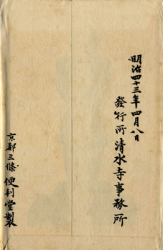 明治四十三年四月八日
發行所清水寺事務所
京都三條便利堂製